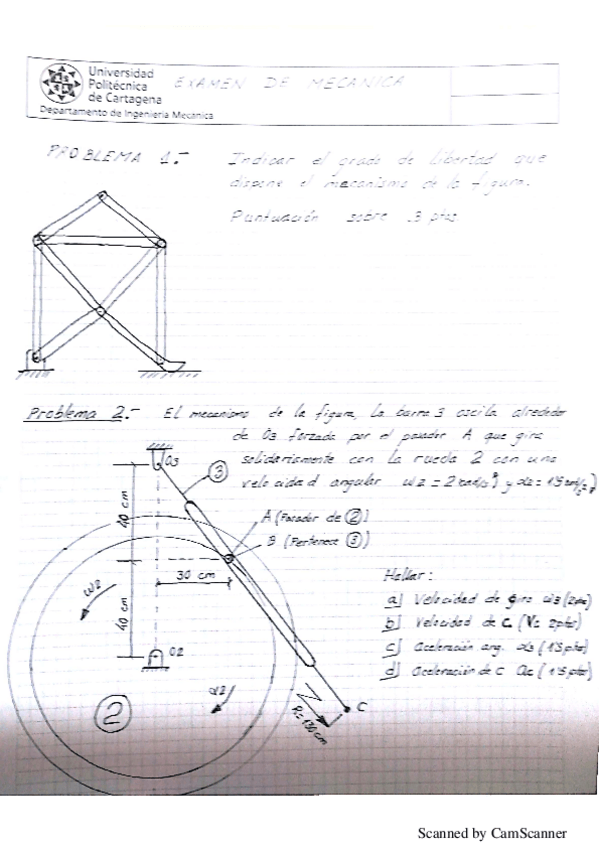 Universidad
Politécnica
de Cartagena
EXAMEN DE MECANICA
Departamento de Ingeniería Mecánica
PROBLEMA 1.- Indicar el grado de libertad que
dispone el mecanismo de la figura.
Puntuación sobre 3 ptos.
Problema 2.- El mecanismo de la figura, la barra 3 oscila alrededor
de O3 forzada por el pasador A que gira
solidariamente con la rueda 2 con una
velocidad angular ω2 = 2 rad/s y α2 = 1'5 rad/s²
O3
3
A (Pasador de 2)
B (Pertenece 3)
40 cm
30 cm
40 cm
ω2
O2
α2
2
C
R= 130 cm
Hallar:
a) Velocidad de giro ω3 (2 ptos)
b) Velocidad de C. (Vc 2 ptos)
c) Aceleración ang. α3 (1'5 ptos)
d) Aceleración de C ac (1'5 ptos)
Scanned by CamScanner